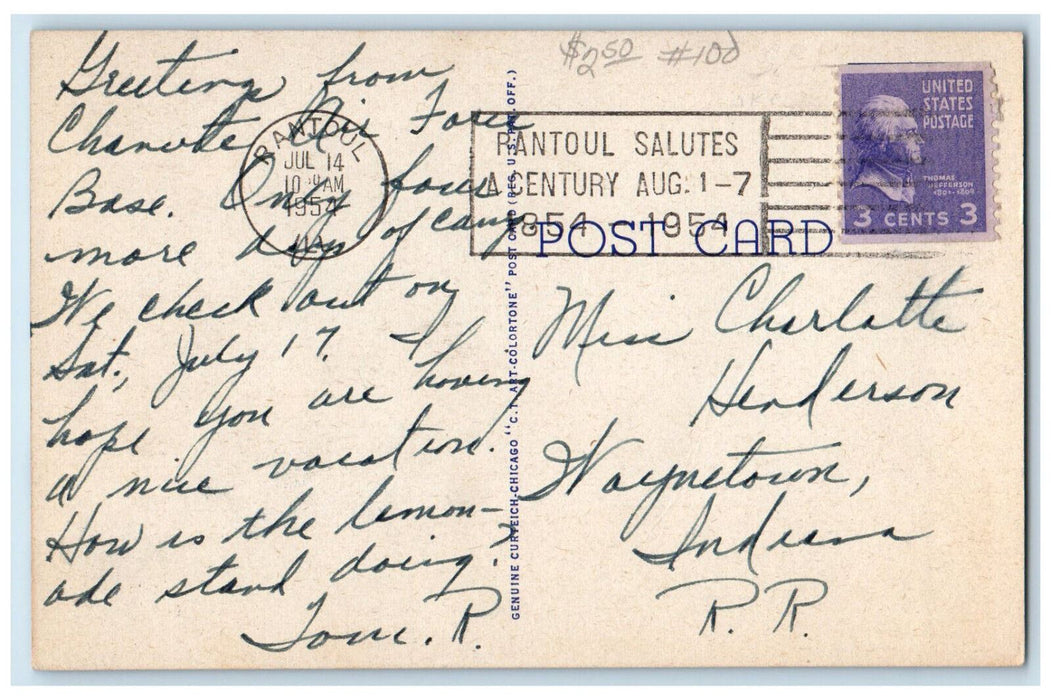 $2.50 #100
Greetings from
Chanute Air Force
Base. Only four
more days of camp.
We check out on
Sat., July 17. I
hope you are having
a nice vacation.
How is the lemon-
ade stand doing?
Tom. R.
RANTOUL
JUL 14
10 AM
1954
ILL.
RANTOUL SALUTES
A CENTURY AUG. 1-7
1854 1954
UNITED
STATES
POSTAGE
THOMAS
JEFFERSON
1801-1809
3 CENTS 3
POST CARD
GENUINE CURTEICH-CHICAGO "C. T. ART-COLORTONE" POST CARD (REG. U. S. PAT. OFF.)
Miss Charlotte
Henderson
Waynetown,
Indiana
R. R.